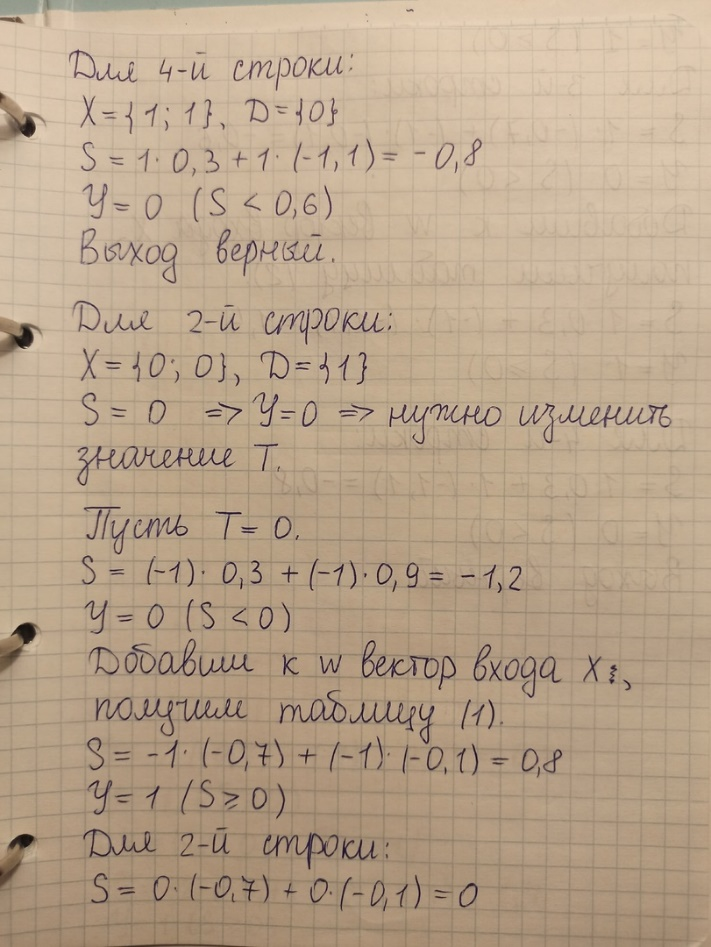 Для 4-й строки:
X={1; 1}, D={0}
S = 1· 0,3 + 1· (-1,1) = -0,8
Y = 0 (S < 0,6)
Выход верный.
Для 2-й строки:
X={0; 0}, D={1}
S = 0 => Y=0 => нужно изменить
значение T.
Пусть T = 0.
S = (-1)· 0,3 + (-1)·0,9 = -1,2
Y = 0 (S < 0)
Добавим к w вектор входа X,
получим таблицу (1).
S = -1· (-0,7) + (-1)·(-0,1) = 0,8
Y = 1 (S ≥ 0)
Для 2-й строки:
S = 0·(-0,7) + 0·(-0,1) = 0